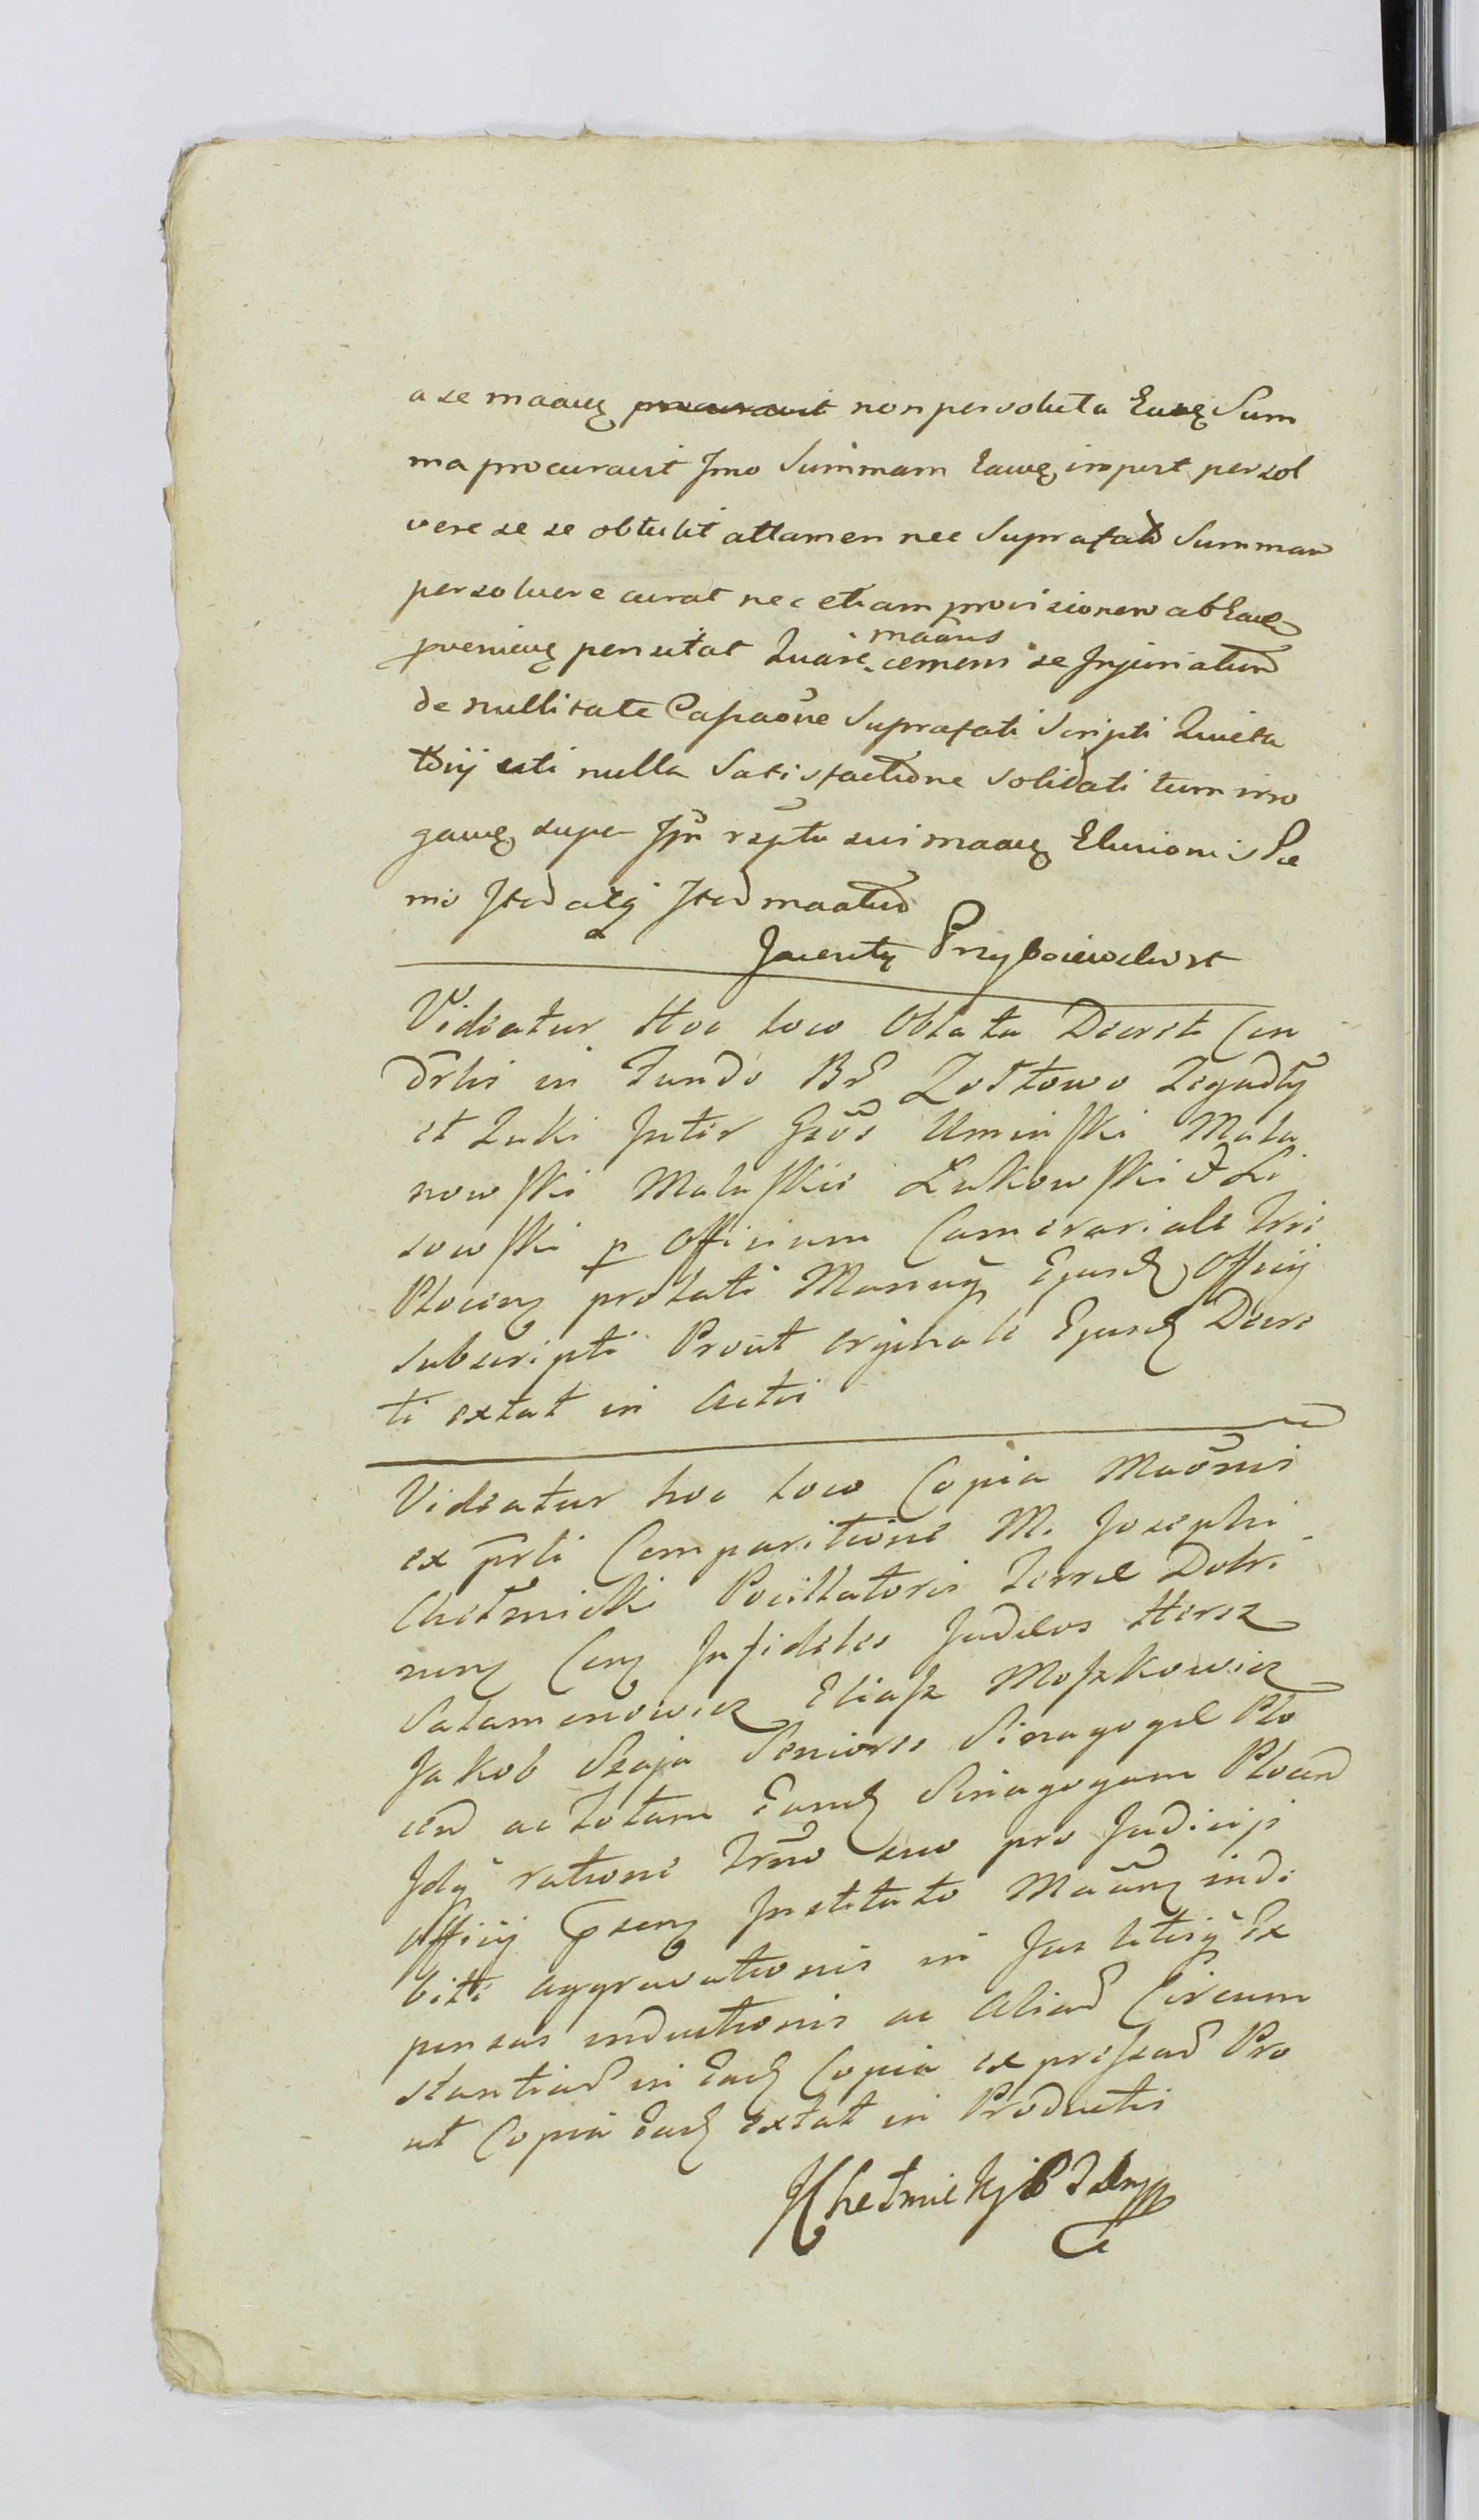 a se maaus procuravit non persoluta Eadq Sum
ma procuravit Imo Summam Eamq impst persol
vere se se obtulit attamen nec Suprafatd Summam
persoluere curat nec etiam provisionem ab Eadq
pvenieng pensitat Quare maans cernens se Injuriatum
de nullitate Capaõne Suprafati Scripti Quieta
torij uti nulla Satisfactione Solidati tum irro
gamq super Jpm rsptu sui maaus Elusionis Pæ
nis Ited atq Ited maatur
Jacenty Przyboiewski
Videatur Hoc loco Oblata Decreti Con
drlis in Fundo Br Zołtowo
et Łuki Inter Gsõs Uminski Mala
nowski Malaskie Łukowski & Li
sowski p Officium Camerariale Trre
Plocens prolati Manuq Ejusd Officij
subscripti Prout originale Ejusd Decre
ti extat in Actis
Videatur hoc loco Copia Maõnis
ex prti Comparitione M. Josephi
Chełmicki Pocillatoris Terræ Dobri
nens Cons Infideles Judæos Hersz
Salamonowicz Eliasz Moszkowicz
Jakob Szaja Seniores Sinagogæ Plo
cen ac totam Eand Sinagogam Plocen
Idq ratione Trmo suo pro Judicijs
Officij psens Instituto Maãns inde
biti aggravationis in Jus litisq Ex
pensas inductionis ac aliad Circum
stantiad in Ead Copia expressad Pro
ut Copia Ead extat in Productis
JChełmickj P Z Dmpp